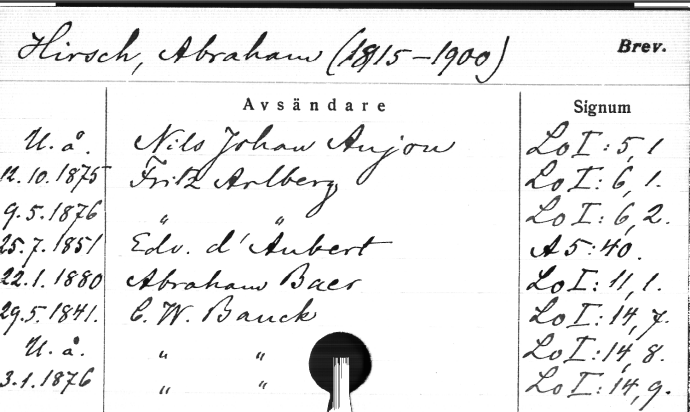 Hirsch, Abraham (1815-1900) Brev.
Avsändare Signum
U. å. Nils Johan Anjou Lo I: 5, 1
12.10.1875 Fritz Arlberg Lo I: 6, 1.
9.5.1876 " " Lo I: 6, 2.
25.7.1851 Edv. d'Aubert A 5: 40.
22.1.1880 Abraham Baer Lo I: 11, 1.
29.5.1841. C. W. Bauck Lo I: 14, 7.
U. å. " " Lo I: 14, 8.
3.1.1876 " " Lo I: 14, 9.